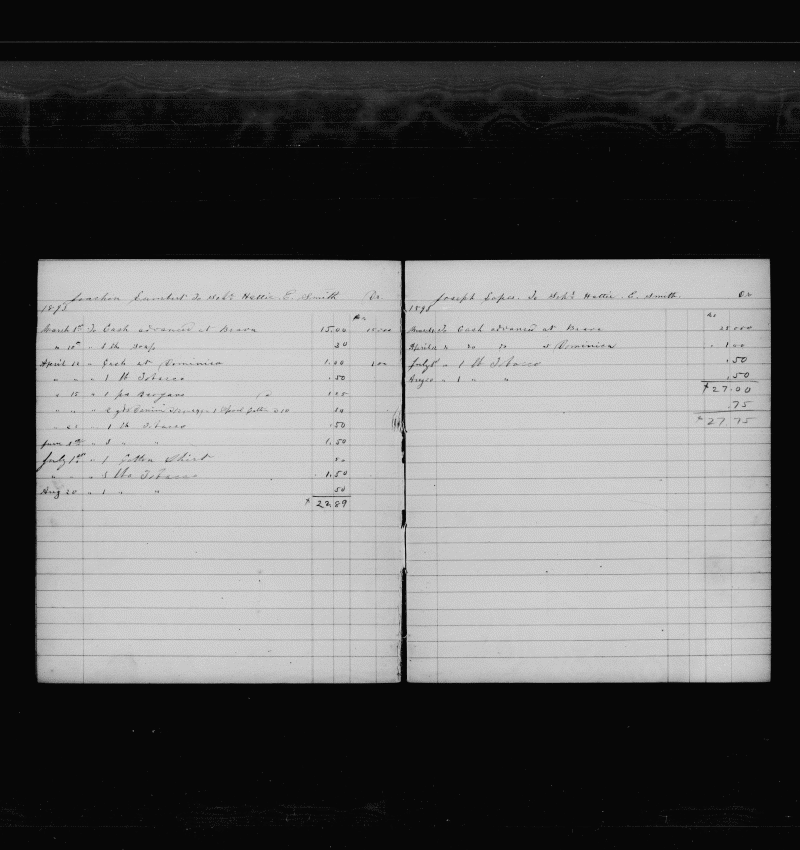 Joachon Lambert To Schr Hattie E. Smith Dr.
1895
March 1st To Cash advanced at Brava 15.00
" 10th " 1 lb Soap 30
April 12 " Cash at Dominica 1.00 1.00
" " " 1 lb Tobacco .50
" 15 " 1 pr Brogans
" " " 2 yds Denim 1 Spool Cotton
" " 1 lb Tobacco .50
June " 3 " " 1.50
July 1st " 1 Cotton Shirt
" " " 3 lbs Tobacco 1.50
Aug 20 " 1 " " 50
$ 22.89
Joseph Lopes To Schr Hattie E. Smith. Dr
1895
March 1 To Cash advanced at Brava 25.000
April 12 " Do Do at Dominica " 1.00
July 1st " 1 lb Tobacco .50
Aug 20 " 1 " " .50
$ 27.00
.75
$ 27.75